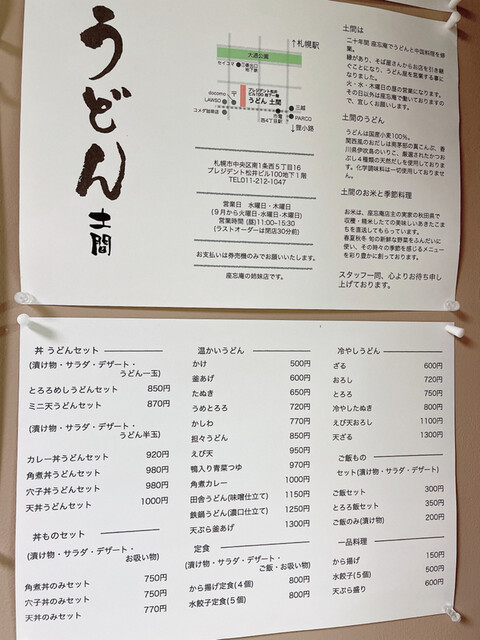 うどん 土間
↑札幌駅
大通公園
セイコマ
三番出口
地下鉄
docomo
LAWSO
コメダ珈琲店
プレジデント松井
ビル100 地下一階
うどん 土間
三越
市電
西4丁目
PARCO
狸小路
札幌市中央区南1条西5丁目16
プレジデント松井ビル100地下1階
TEL011-212-1047
営業日 水曜日・木曜日
(9月から火曜日・水曜日・木曜日)
営業時間 (昼)11:00~15:30
(ラストオーダーは閉店30分前)
お支払いは券売機のみでお願いいたします。
座忘庵の姉妹店です。
土間は
二十年間 座忘庵でうどんと中国料理を修
業。
縁があり、そば屋さんからお店を引き継
ぐことになり、うどん屋を営業する事に
なりました。
火・水・木曜日の昼の営業になります。
その日以外は座忘庵で働いておりますの
で、宜しくお願いします。
土間のうどん
うどんは国産小麦100%。
関西風のおだしは南茅部の真こんぶ、香
川県伊吹島のいりこ、厳選されたかつお
ぶし4種類の天然だしを使用しておりま
す。化学調味料は一切使用しておりませ
ん。
土間のお米と季節料理
お米は、座忘庵店主の実家の秋田県で
収穫・精米したての美味しいあきたこま
ちを直送してもらっています。
春夏秋冬 旬の新鮮な野菜をふんだいに
使い、その時々の季節を感じるメニュー
を彩り豊かに創っております。
スタッフ一同、心よりお待ち申し
上げております。
丼 うどんセット
(漬け物・サラダ・デザート・
うどん一玉)
とろろめしうどんセット 850円
ミニ天うどんセット 870円
(漬け物・サラダ・デザート・
うどん半玉)
カレー丼うどんセット 920円
角煮丼うどんセット 980円
穴子丼うどんセット 980円
天丼うどんセット 1000円
丼ものセット
(漬け物・サラダ・デザート・
お吸い物)
角煮丼のみセット 750円
穴子丼のみセット 750円
天丼のみセット 770円
温かいうどん
かけ 500円
釜あげ 600円
たぬき 650円
うめとろろ 720円
かしわ 770円
担々うどん 850円
えび天 950円
鴨入り青菜つゆ 970円
角煮カレー 1000円
田舎うどん(味噌仕立て) 1150円
鉄鍋うどん(濃口仕立て) 1250円
天ぷら釜あげ 1300円
定食
(漬け物・サラダ・デザート・
ご飯・お吸い物)
から揚げ定食(4個) 800円
水餃子定食(5個) 800円
冷やしうどん
ざる 600円
おろし 720円
とろろ 750円
冷やしたぬき 800円
えび天おろし 1100円
天ざる 1300円
ご飯もの
セット(漬け物・サラダ・デザート)
ご飯セット 300円
とろろ飯セット 350円
ご飯のみ(漬け物) 200円
一品料理
から揚げ 150円
水餃子(5個) 500円
天ぷら盛り 600円